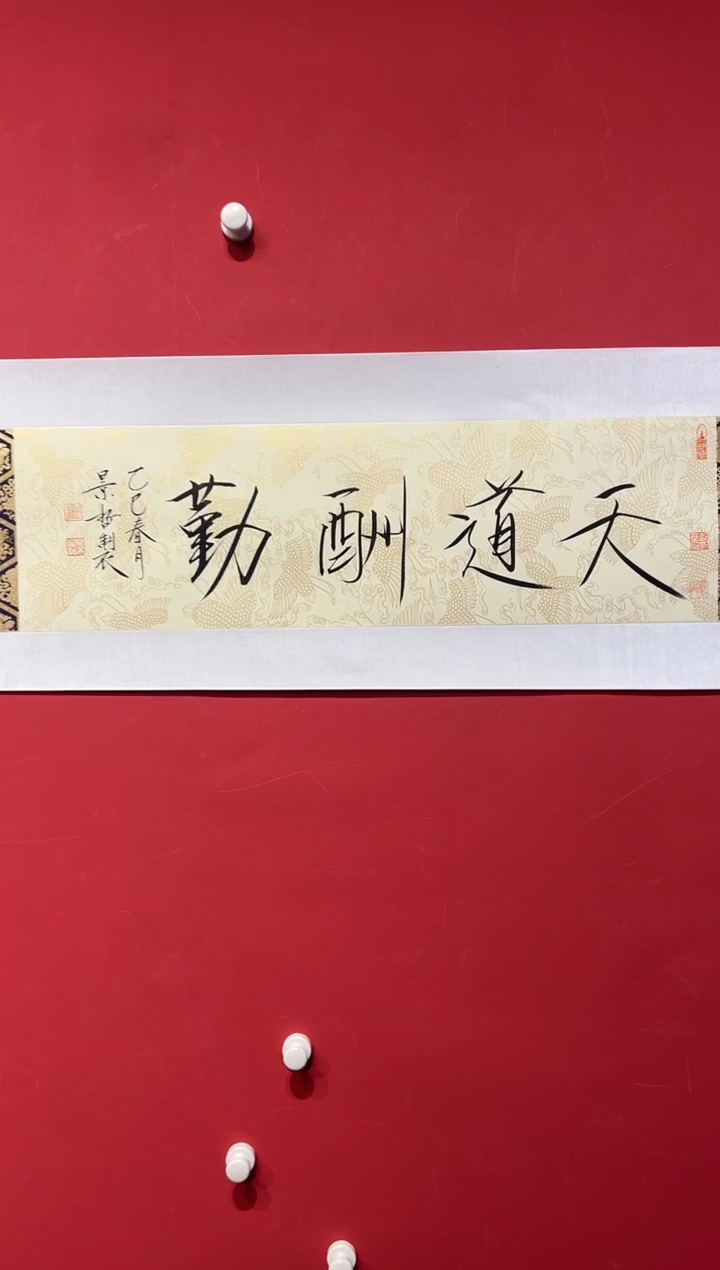 天道酬勤
乙巳春月
景哲制衣